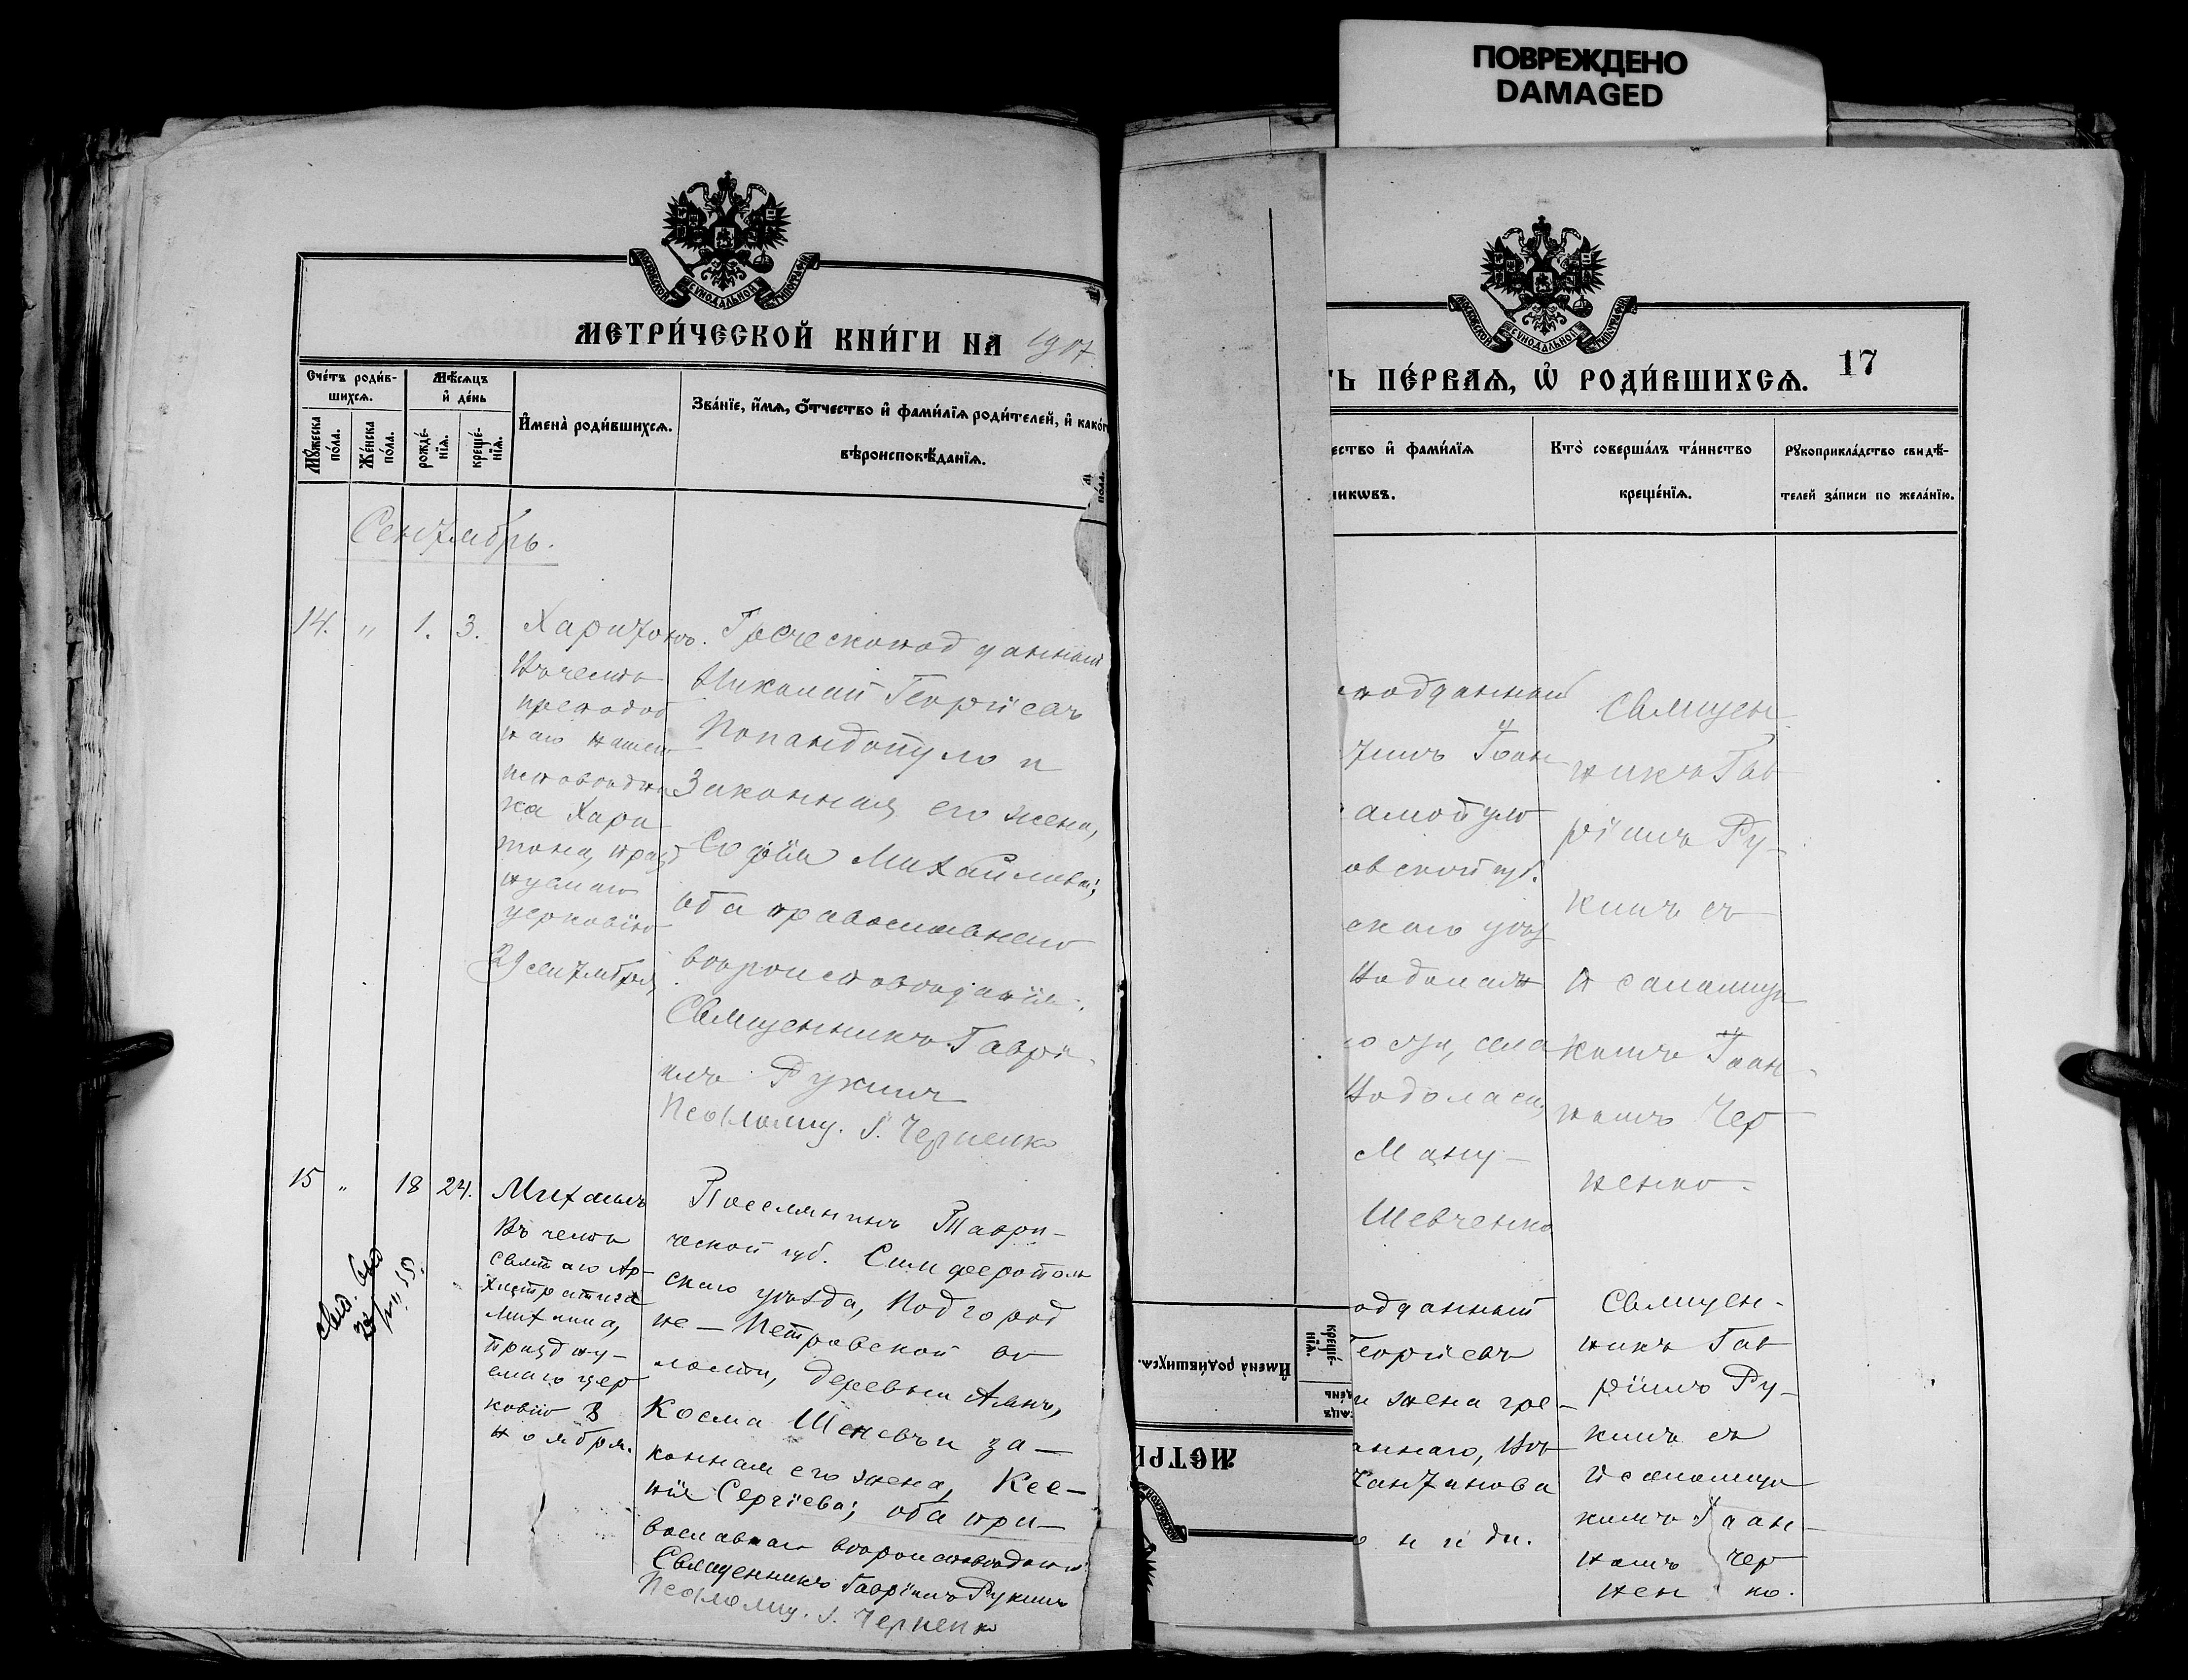 ПОВРЕЖДЕНО
DAMAGED
МОСКОВСКОЙ СѴНОДАЛЬНОЙ ТИПОГРАФІИ
МЕТРИ́ЧЕСКОЙ КНИ́ГИ НА 1917
Сче́тъ роди́в-
шихсѧ.
Мѣ́сѧцъ
и҆ де́нь
Мꙋ́жеска
по́ла.
Же́нска
по́ла.
рожде́-
нїѧ.
креще́-
нїѧ.
И҆мена̀ роди́вшихсѧ.
Зва́нїе, и҆́мѧ, ѻ҆́тчество и҆ фами́лїѧ роди́телей, и҆ како́г
вѣроисповѣ́данїѧ.
Сентябрь.
14. " 1. 3.
Харитонъ.
Въ честь
преподоб
наго нашего
исповѣдни
ка Хари
тона, праз
нуемаго
церковію
29 сентября
Греческоподданный
Николай Георгіевъ
Попандопуло и
Законная его жена,
Софія Михайлова;
оба православнаго
вѣроисповѣданія.
Священникъ Гаврі-
илъ Рукинъ
Псаломщ. І. Черненко
15 " 18 24.
Михаилъ
Въ честь
Святаго Ар-
хистратига
Михаила,
праздну-
емаго цер
ковію 8
ноября.
Поселянинъ Таври-
ческой губ. Симферополь
скаго уѣзда, Подгород
не-Петровской во
лости, деревни
Косма Шеневъ и за-
конная его жена, Ксе-
нія Сергіева; оба пра-
вославнаго вѣроисповѣданія
Священникъ Гавріилъ Рукинъ
Псаломщ. І. Черненко
МОСКОВСКОЙ СѴНОДАЛЬНОЙ ТИПОГРАФІИ
ТЬ ПЕ́РВАѦ, Ѽ РОДИ́ВШИХСѦ. 17
ество и҆ фами́лїѧ
никѡвъ.
Кто̀ соверша́лъ та́инство
креще́нїѧ.
Рꙋкоприкла́дство свидѣ́-
телей за́писи по жела́нїю.
подданный
Іоан
опуло
овской губ.
скаго уѣз
села
Шевченко
Священ
никъ Гав
ріилъ Ру-
кинъ съ
псаломщи
комъ Іоан-
номъ Чер
ненко.
одданный
Георгіевъ
и жена гре-
аннаго,
о н и ди.
Священ-
никъ Гав
ріилъ Ру-
кинъ съ
псаломщи
комъ Іоан-
номъ Чер
нен ко.
И҆мена̀ роди́вшихсѧ.
креще́-
нїѧ.
МЕТРИ